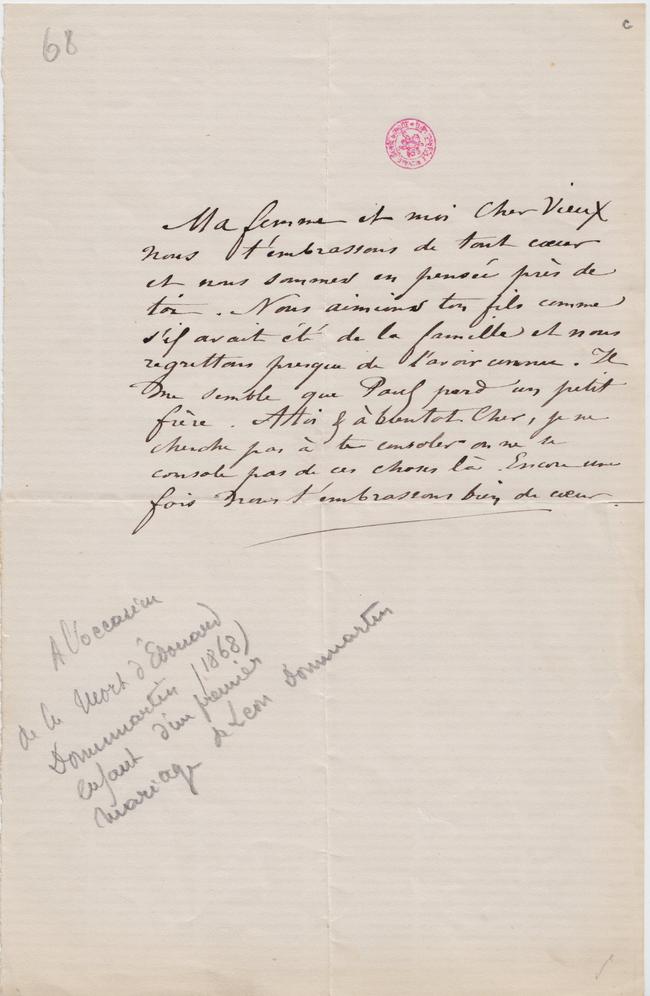 68
c
Ma femme et moi Cher Vieux
nous t'embrassons de tout cœur
et nous sommes en pensée près de
toi. Nous aimions ton fils comme
s'il avait été de la famille et nous
regrettons presque de l'avoir connu. Il
me semble que Paul perd un petit
frère. A toi & à bientot Cher, je ne
cherche pas à te consoler on ne se
console pas de ces choses là. Encore une
fois nous t'embrassons bien de cœur.
A l'occasion
de la mort d'Édouard
Dommartin (1868)
enfant d'un premier
mariage de Léon Dommartin